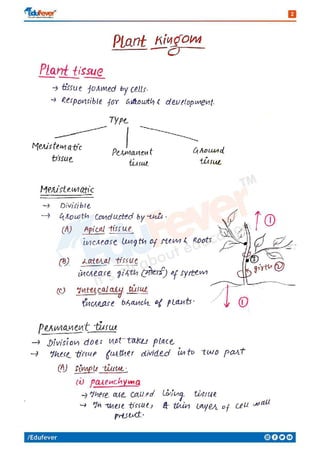 Edufever
2
Plant Kingom
Plant tissue
→ tissue formed by cells.
→ Responsible for Growth & development.
Type
Meristematic tissue
Permanent tissue
Ground tissue
Meristematic
→ Divisible
→ Growth Conducted by this.
(A) Apical tissue
increase length of stem & Roots.
(B) Lateral tissue
increase girth of system
(C) Intercalary tissue
increase branch of plants.
↑ ①
girth ②
↓ ①
Permanent tissue
→ Division does not takes place
→ These tissue further divided into two part
(A) Simple tissue.
(i) Parenchyma
→ These are called living tissue
→ In these tissue, A thin layer of cell wall
present.
/Edufever